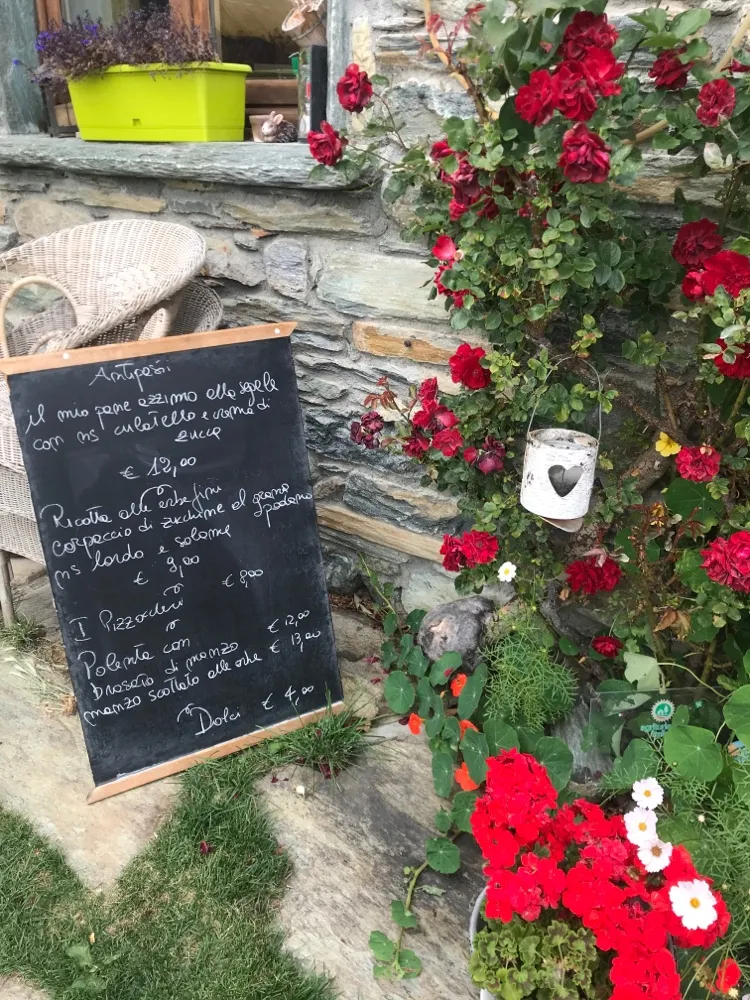 Antipasti
il mio pane azzimo alla segale
con ns culatello e crema di
zucca
€ 12,00
Ricotta alle erbe fini
carpaccio di zucchine al grana
padano
ns lardo e salame
€ 9,00
I Pizzoccheri € 8,00
Polenta con
brasato di manzo € 12,00
manzo scottato alle erbe € 13,00
Dolci € 4,00